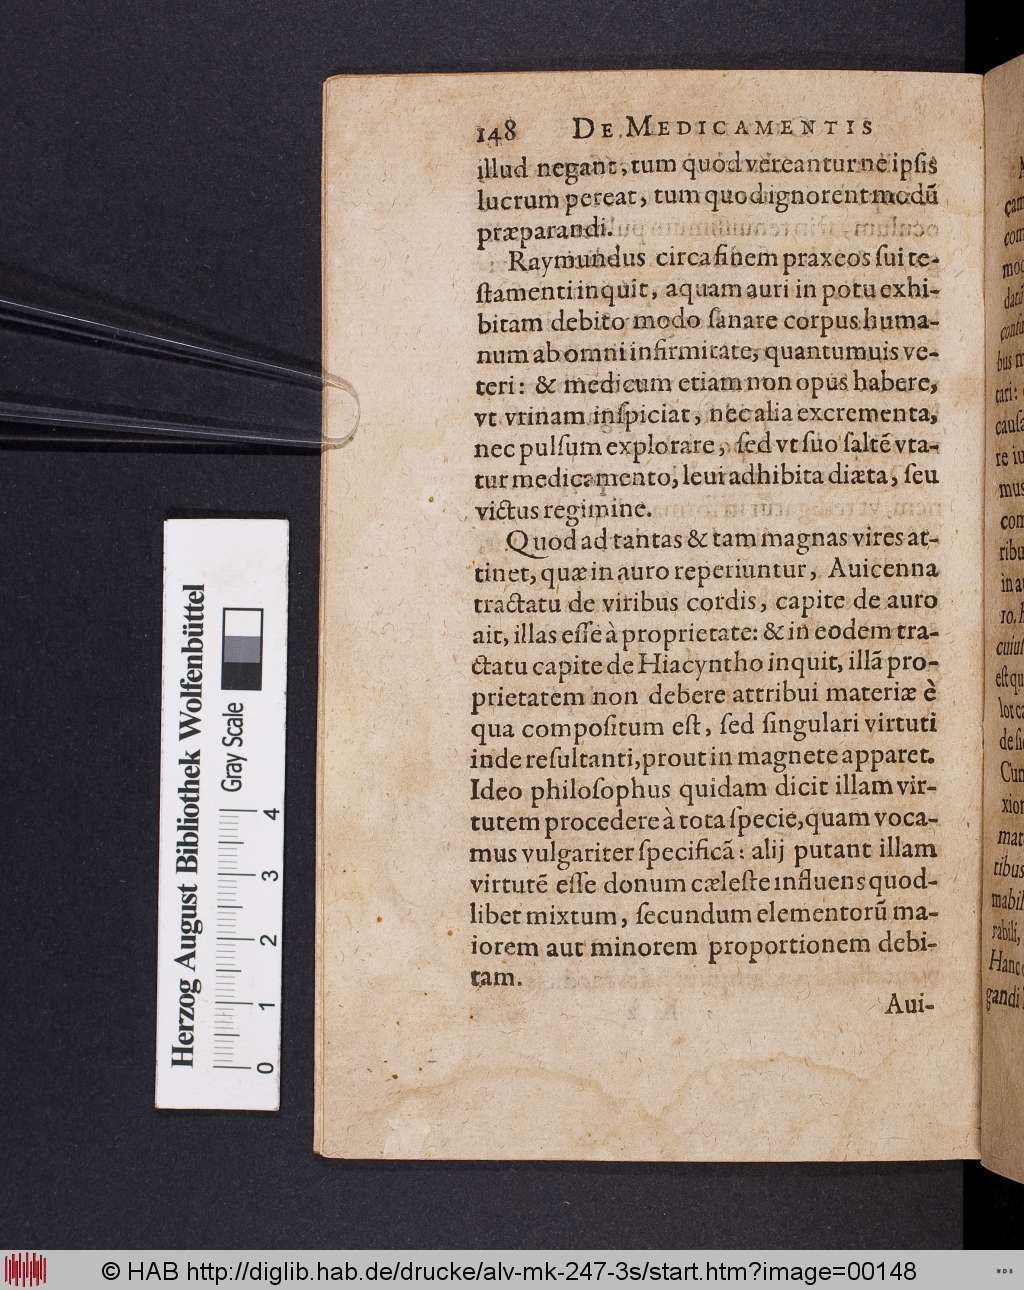 148 DE MEDICAMENTIS
illud negant, tum quod vereantur ne ipſis
lucrum pereat, tum quod ignorent modū
præparandi.
Raymundus circa finem praxeos ſui te-
ſtamenti inquit, aquam auri in potu exhi-
bitam debito modo ſanare corpus huma-
num ab omni infirmitate, quantumuis ve-
teri: & medicum etiam non opus habere,
vt vrinam inſpiciat, nec alia excrementa,
nec pulſum explorare, ſed vt ſuo ſaltē vta-
tur medicamento, leui adhibita diæta, ſeu
victus regimine.
Quod ad tantas & tam magnas vires at-
tinet, quæ in auro reperiuntur, Auicenna
tractatu de viribus cordis, capite de auro
ait, illas eſſe à proprietate: & in eodem tra-
ctatu capite de Hiacyntho inquit, illā pro-
prietatem non debere attribui materiæ è
qua compoſitum eſt, ſed ſingulari virtuti
inde reſultanti, prout in magnete apparet.
Ideo philoſophus quidam dicit illam vir-
tutem procedere à tota ſpecie, quam voca-
mus vulgariter ſpecificā: alij putant illam
virtutē eſſe donum cæleſte influens quod-
libet mixtum, ſecundum elementorū ma-
iorem aut minorem proportionem debi-
tam.
Aui-
Herzog August Bibliothek Wolfenbüttel
Gray Scale
0 1 2 3 4
© HAB http://diglib.hab.de/drucke/alv-mk-247-3s/start.htm?image=00148